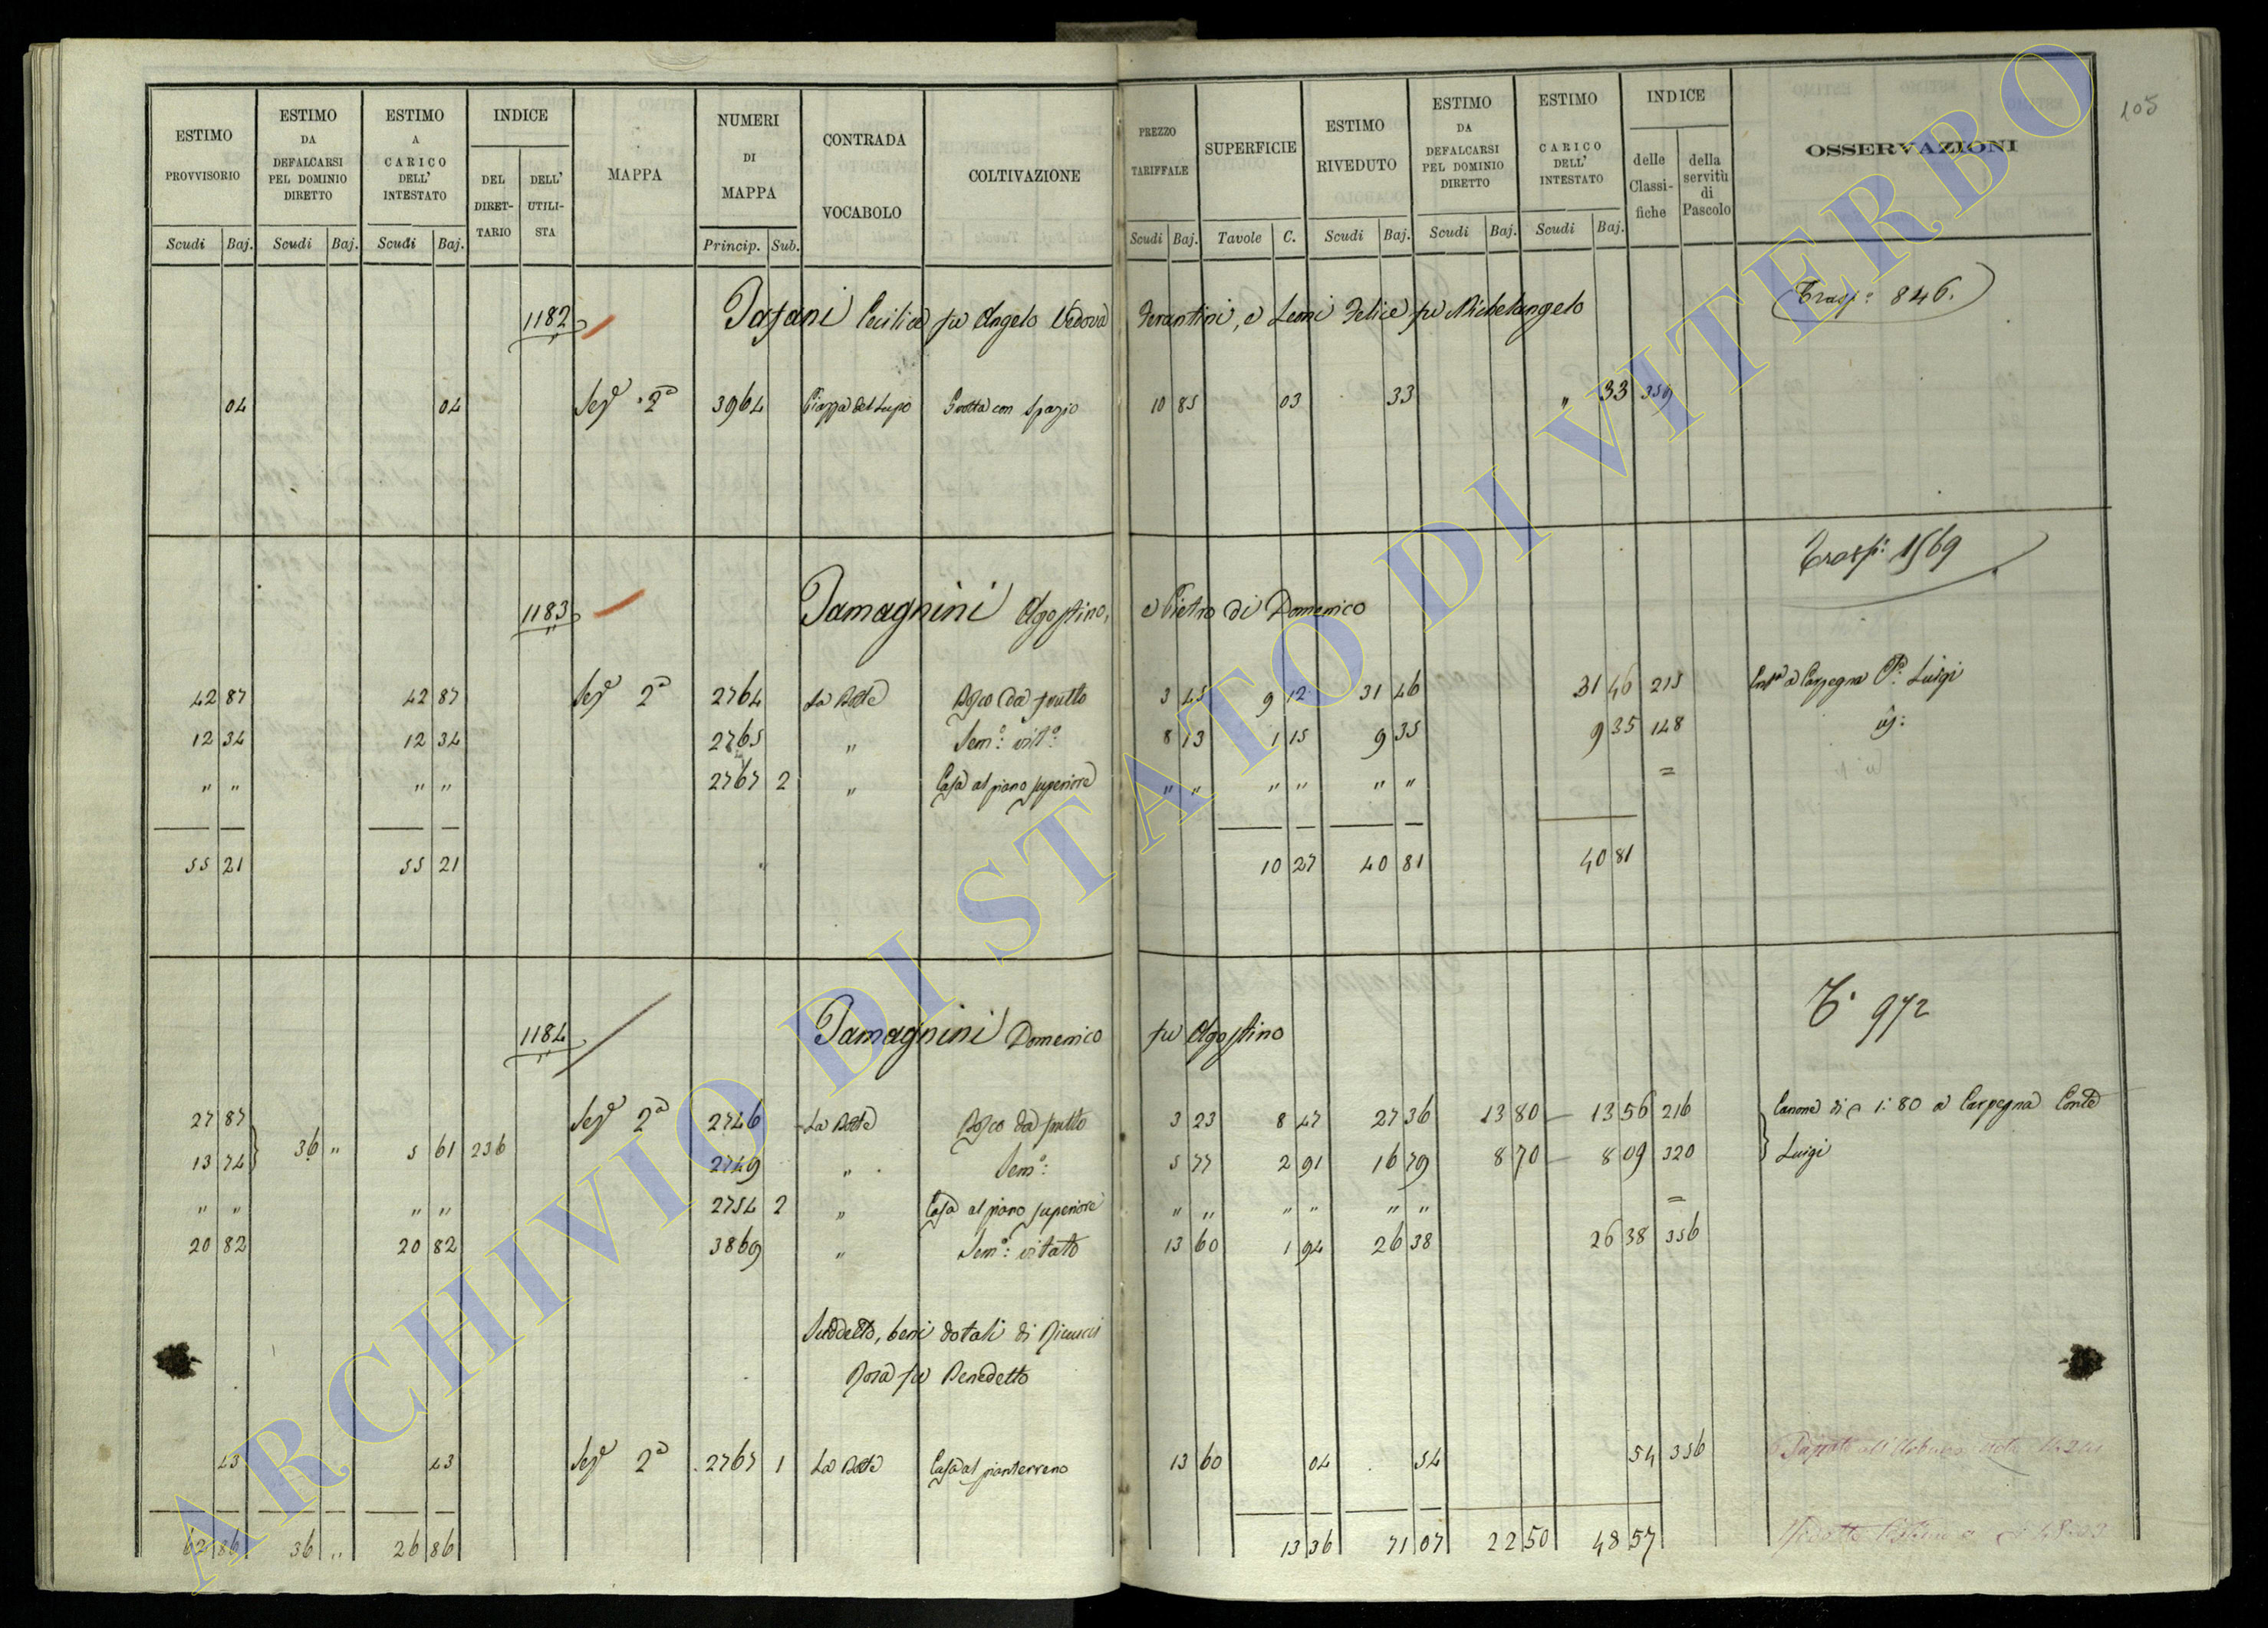 105
ESTIMO PROVVISORIO
ESTIMO DA DEFALCARSI PEL DOMINIO DIRETTO
ESTIMO A CARICO DELL' INTESTATO
INDICE
DEL DIRET-TARIO
DELL' UTILI-STA
MAPPA
NUMERI DI MAPPA
CONTRADA VOCABOLO
COLTIVAZIONE
PREZZO TARIFFALE
SUPERFICIE
ESTIMO RIVEDUTO
ESTIMO DA DEFALCARSI PEL DOMINIO DIRETTO
ESTIMO CARICO DELL' INTESTATO
INDICE
delle Classi-fiche
della servitù di Pascolo
OSSERVAZIONI
Scudi Baj. Scudi Baj. Scudi Baj. Princip. Sub. Scudi Baj. Tavole C. Scudi Baj. Scudi Baj. Scudi Baj.
1182 Tafani Cecilia fu Angelo Vedova Ferantini, e Leoni Felice fu Michelangelo Trasp: 846.
04 04 Seze 2a 3964 Piazza del Lupo Grotta con spazio 10 85 03 33 " 33 359
Trasp: 1569
1183 Tamagnini Agostino, e Pietro di Domenico
42 87 42 87 Seze 2a 2764 La Botte Bosco da frutto 3 45 9 12 31 46 31 46 215 a Carpegna Luigi
12 34 12 34 2765 " Sem: vit: 8 13 1 15 9 35 9 35 148
" " " " 2767 2 " Casa al piano superiore " " " " " " =
55 21 55 21 10 27 40 81 40 81
T. 972
1184 Tamagnini Domenico fu Agostino
27 87 Seze 2a 2746 La Botte Bosco da frutto 3 23 8 47 27 36 13 80 13 56 216 Canone di 1:80 a Carpegna Conte
36 " 5 61 236
13 74 2749 " Sem: 5 77 2 91 16 79 8 70 8 09 320 Luigi
" " " " 2754 2 " Casa al piano superiore " " " " " " =
20 82 20 82 3869 " Sem: vitato 13 60 1 94 26 38 26 38 356
Suddetto, beni dotali di
Rosa fu Benedetto
43 43 Seze 2a 2767 1 La Botte Casa al pianterreno 13 60 04 54 54 356
62 86 36 " 26 86 13 36 71 07 22 50 48 57
ARCHIVIO DI STATO DI VITERBO